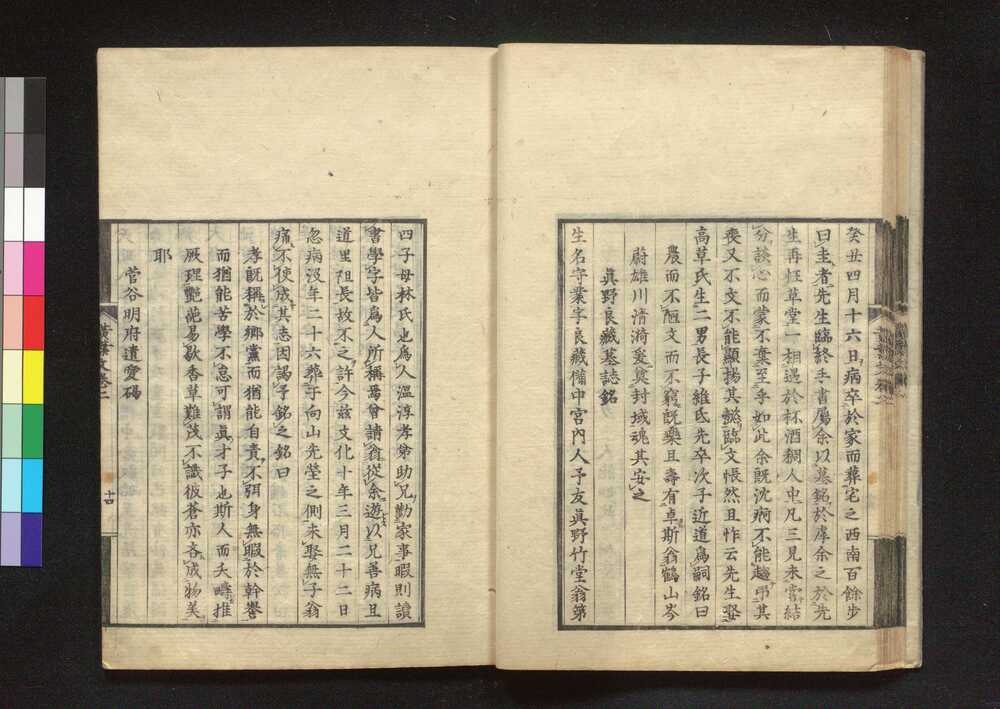 癸丑四月十六日病卒於家而葬宅之西南百餘步
曰主者先生臨終手書屬余以墓銘於虖余之於先
生再枉草堂一相遇於杯酒稠人中凡三見未嘗結
分談心而蒙不棄至乎如此余既沈痾不能趨弔其
喪又不文不能顯揚其懿臨文悵然且怍云先生娶
高草氏生二男長子維氐先卒次子近道爲嗣銘曰
農而不陋文而不窮既藥且壽有卓斯翁鶴山岑
蔚雄川清漪奚奠封域魂其安之
眞野良藏墓誌銘
生名守業字良藏備中宮内人予友眞野竹堂翁第
四子母林氏也爲人温淳孝弟助兄勤家事暇則讀
書學字皆爲人所稱焉曾請翁從余遊以兄善病且
道里阻長故不之許今玆文化十年三月二十二日
忽病沒年二十六葬于向山先塋之側未娶無子翁
痛不使成其志因謁予銘之銘曰
孝既稱於鄉黨而猶能自責不弭身無暇於幹譽
而猶能苦學不怠可謂眞才子也斯人而夭疇推
厥理艷葩易歇香草難茂不識彼蒼亦吝成物美
耶
菅谷明府遺愛碣
黃葉文卷三
十四